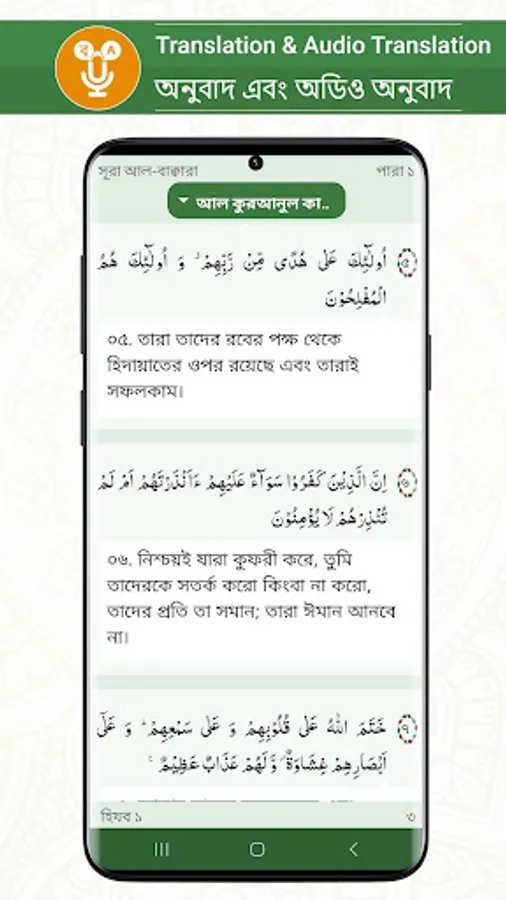 ব A
Translation & Audio Translation
অনুবাদ এবং অডিও অনুবাদ
সূরা আল-বাক্বারা পারা ১
আল কুরআনুল কা..
اُولٰٓئِكَ عَلٰى هُدًى مِّنْ رَّبِّهِمْ ۙ وَ اُولٰٓئِكَ هُمُ ৫
الْمُفْلِحُوْنَ
০৫. তারা তাদের রবের পক্ষ থেকে
হিদায়াতের ওপর রয়েছে এবং তারাই
সফলকাম।
اِنَّ الَّذِيْنَ كَفَرُوْا سَوَآءٌ عَلَيْهِمْ ءَاَنْذَرْتَهُمْ اَمْ لَمْ ৬
تُنْذِرْهُمْ لَا يُؤْمِنُوْنَ
০৬. নিশ্চয়ই যারা কুফরী করে, তুমি
তাদেরকে সতর্ক করো কিংবা না করো,
তাদের প্রতি তা সমান; তারা ঈমান আনবে
না।
خَتَمَ اللّٰهُ عَلٰى قُلُوْبِهِمْ وَ عَلٰى سَمْعِهِمْ ؕ وَ عَلٰٓى ৭
اَبْصَارِهِمْ غِشَاوَةٌ ؗ وَّ لَهُمْ عَذَابٌ عَظِيْمٌ
হিযব ১ ৩